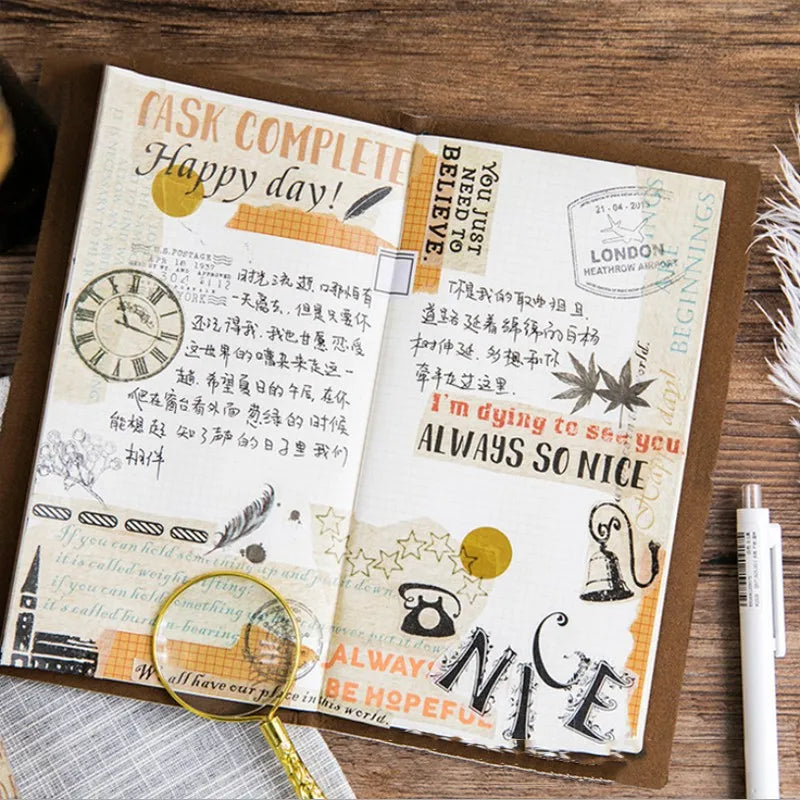 TASK COMPLETE
Happy day!
U.S. POSTAGE
APR 18 1932
NEW YORK
时光流逝,哪怕有
一天离去,但是只要你
还记得我,我也甘愿恋爱
这世界的嘈杂来走这一
趟.希望夏日的午后,在你
爬在窗台看外面葱绿的时候
能想起知了声的日子里我们
相伴
If you can hold something up and put it down,
it is called weight-lifting;
if you can hold something up but can never put it down
it's called burden-bearing
We all have our place in this world.
YOU JUST
NEED TO
BELIEVE.
21-04-2013
LONDON
HEATHROW AIRPORT
BEGINNINGS
道路延着绵绵的白杨
树伸延,多想和你
牵手走过这里.
I'm dying to see you
ALWAYS SO NICE
Happy day!
ALWAYS
BE HOPEFUL
NICE